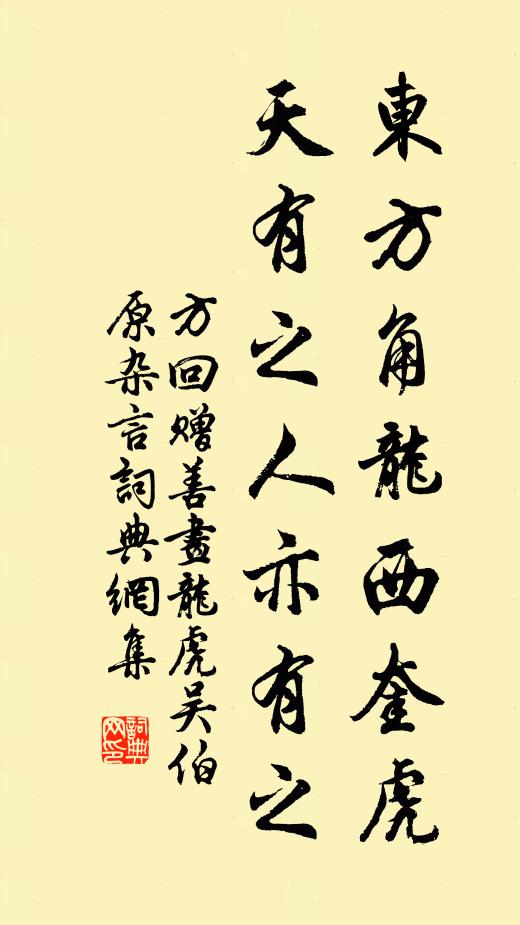 東方角龍西奎虎
天有之人亦有之
方回赠善畫龍虎吴伯
原杂言詞典網集
詞典
网印